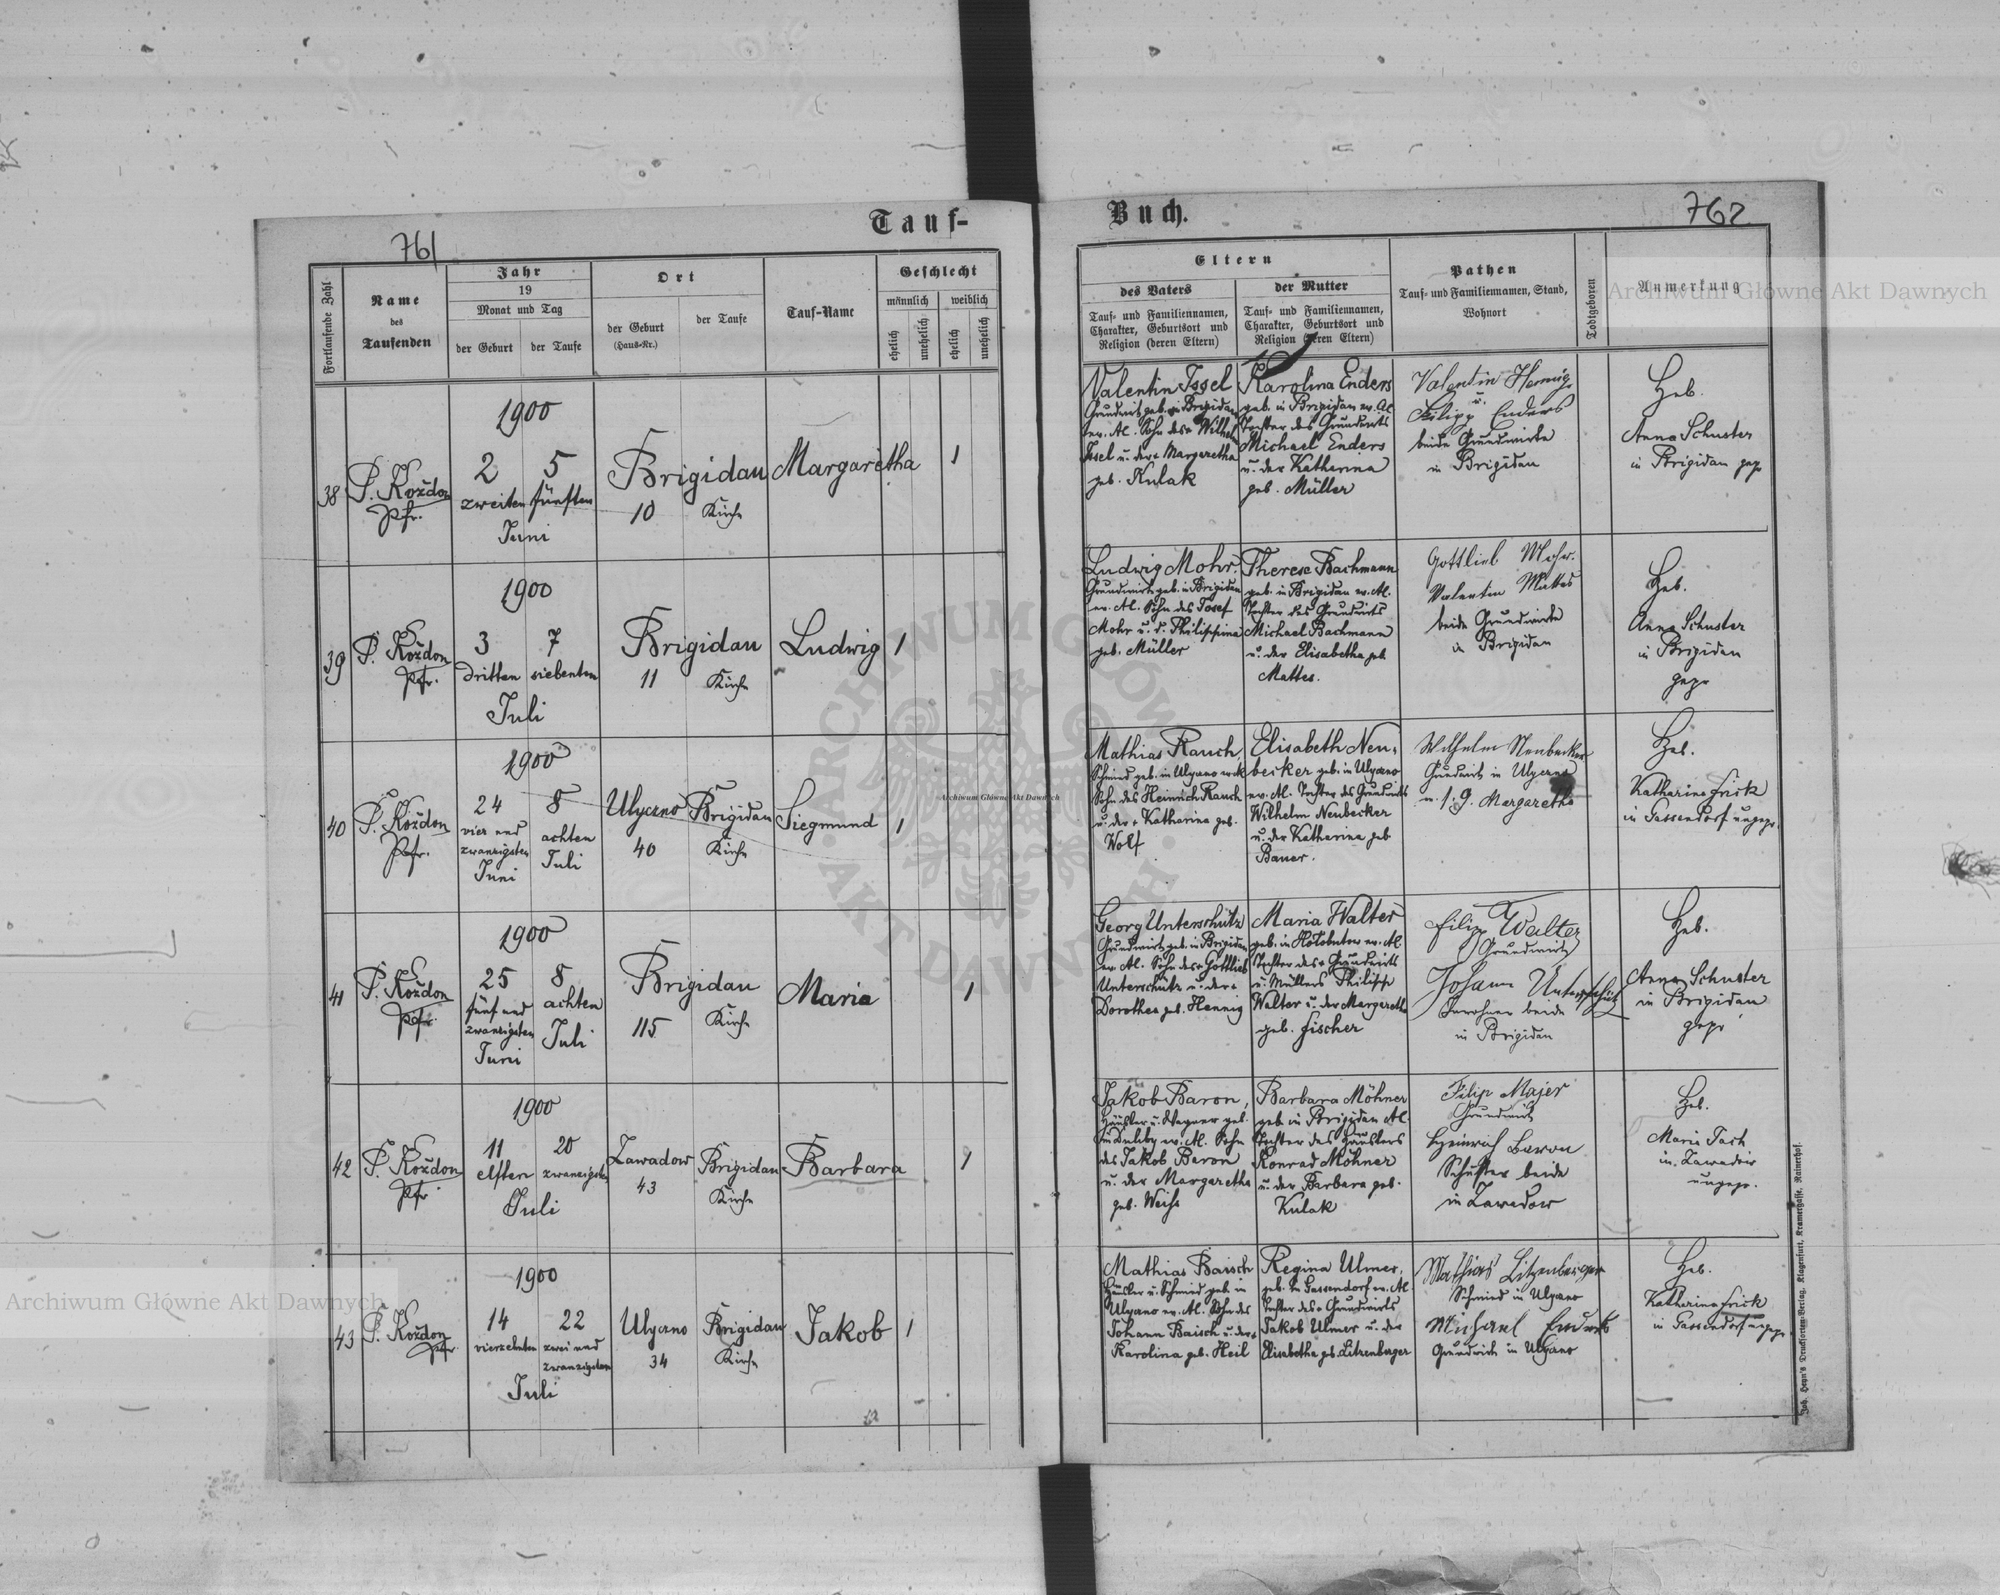 761
Tauf-
Fortlaufende Zahl
Name
des
Taufenden
Jahr
19
Monat und Tag
der Geburt
der Taufe
Ort
der Geburt
(Haus-Nr.)
der Taufe
Tauf-Name
Geschlecht
männlich
weiblich
ehelich
unehelich
ehelich
unehelich
38
P. Koždon
Pfr.
1900
2
zweiten
5
fünften
Juni
Brigidau
10
Kirche
Margaretha
1
39
P. Koždon
Pfr.
1900
3
dritten
7
siebenten
Juli
Brigidau
11
Kirche
Ludwig
1
40
P. Koždon
Pfr.
1900
24
vier und
zwanzigsten
Juni
8
achten
Juli
Ulyczno
40
Brigidau
Kirche
Siegmund
1
41
P. Koždon
Pfr.
1900
25
fünf und
zwanzigsten
Juni
8
achten
Juli
Brigidau
115
Kirche
Maria
1
42
P. Koždon
Pfr.
1900
11
elften
20
zwanzigsten
Juli
Zawadow
43
Brigidau
Kirche
Barbara
1
43
P. Koždon
Pfr.
1900
14
vierzehnten
22
zwei und
zwanzigsten
Juli
Ulyczno
34
Brigidau
Kirche
Jakob
1
Buch.
762
Eltern
des Vaters
Tauf- und Familiennamen,
Charakter, Geburtsort und
Religion (deren Eltern)
der Mutter
Tauf- und Familiennamen,
Charakter, Geburtsort und
Religion (deren Eltern)
Pathen
Tauf- und Familiennamen, Stand,
Wohnort
Todtgeboren
Anmerkung
Valentin Issel
Grundwirt geb. in Brigidau
ev. Al. Sohn des + Wilhelm
Issel u. der + Margaretha
geb. Kulak
Karolina Enders
geb. in Brigidau ev. Al.
Tochter des Grundwirts
Michael Enders
u. der Katharina
geb. Müller
Valentin Hennig
u.
Filipp Enders
beide Grundwirte
in Brigidau
Heb.
Anna Schuster
in Brigidau gepr
Ludwig Mohr,
Grundwirt geb. in Brigidau
ev. Al. Sohn des Josef
Mohr u. d. Philippina
geb. Müller
Therese Bachmann
geb. in Brigidau ev. Al.
Tochter des Grundwirts
Michael Bachmann
u. der Elisabetha geb
Mattes.
Gottlieb Mohr.
Valentin Mattes
beide Grundwirte
in Brigidau
Heb.
Anna Schuster
in Brigidau
gepr
Mathias Rauch,
Schmied geb. in Ulyczno
Sohn des Heinrich Rauch
u. der + Katharina geb.
Wolf
Elisabeth Neu-
becker geb. in Ulyczno
ev. Al. Tochter des Grundwirts
Wilhelm Neubecker
u. der Katharina geb
Bauer.
Wilhelm Neubecker
Grundwirt in Ulyczno
u. s. G. Margaretha
Heb.
Katharina Frick
in Gassendorf ungepr.
Georg Unterschütz
Grundwirt geb. in Brigidau
ev. Al. Sohn des + Gottlieb
Unterschütz u. der +
Dorothea geb. Hennig
Maria Walter
geb. in Hołobutow ev. Al
Tochter des + Grundwirts
u. Müllers Philipp
Walter u. der Margaretha
geb. Fischer
Filip Walter
Grundwirt
Johann Unterschütz
Inwohner beide
in Brigidau
Heb.
Anna Schuster
in Brigidau
gepr
Jakob Baron,
Häusler u. Wagner geb.
in Duliby ev. Al. Sohn
des Jakob Baron
u. der Margaretha
geb. Weiss
Barbara Möhner
geb in Brigidau Al.
Tochter des Häuslers
Konrad Möhner
u. der Barbara geb.
Kulak
Filip Majer
Grundwirt
Heinrich Baron
Schuster beide
in Zawadow
Heb.
Maria Tach
in Zawadow
ungepr.
Mathias Baisch
Häusler u. Schmied geb in
Ulyczno ev. Al. Sohn des
Johann Baisch u. der +
Karolina geb. Heil
Regina Ulmer,
geb. in Gassendorf ev. Al
Tochter des + Grundwirts
Jakob Ulmer u. der
Elisabetha geb. Litzenberger
Mathias Litzenberger
Schmied in Ulyczno
Michael Enders
Grundwirt in Ulyczno
Heb.
Katharina Frick
in Gassendorf ungepr.
Joh. Heyn's Drucksorten-Verlag, Klagenfurt, Kramergasse, Rainerhof.
Archiwum Główne Akt Dawnych
Archiwum Główne Akt Dawnych
Archiwum Główne Akt Dawnych
ARCHIWUM GŁÓWNE · AKT DAWNYCH ·